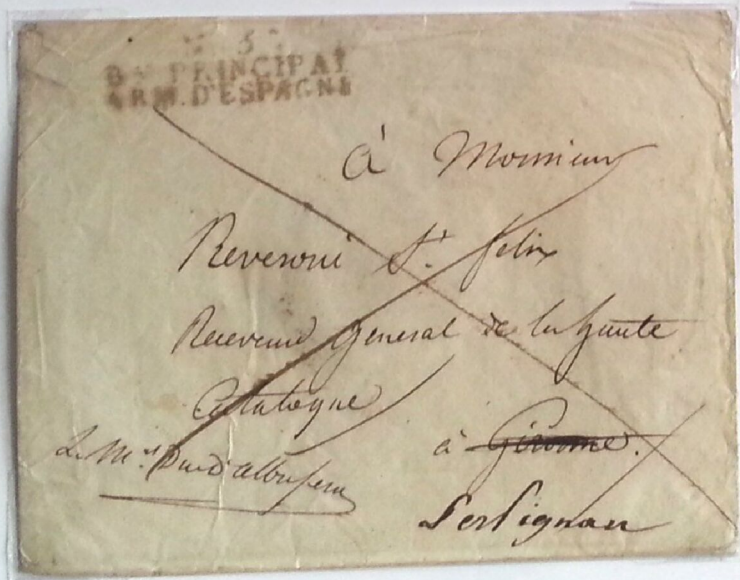 5
Bau PRINCIPAL
ARM. D'ESPAGNE
à Monsieur
Reveroni St. felix
Receveur General de la haute
Catalogne
à Gironne.
Le Mal Duc d'albufera
Perpignan